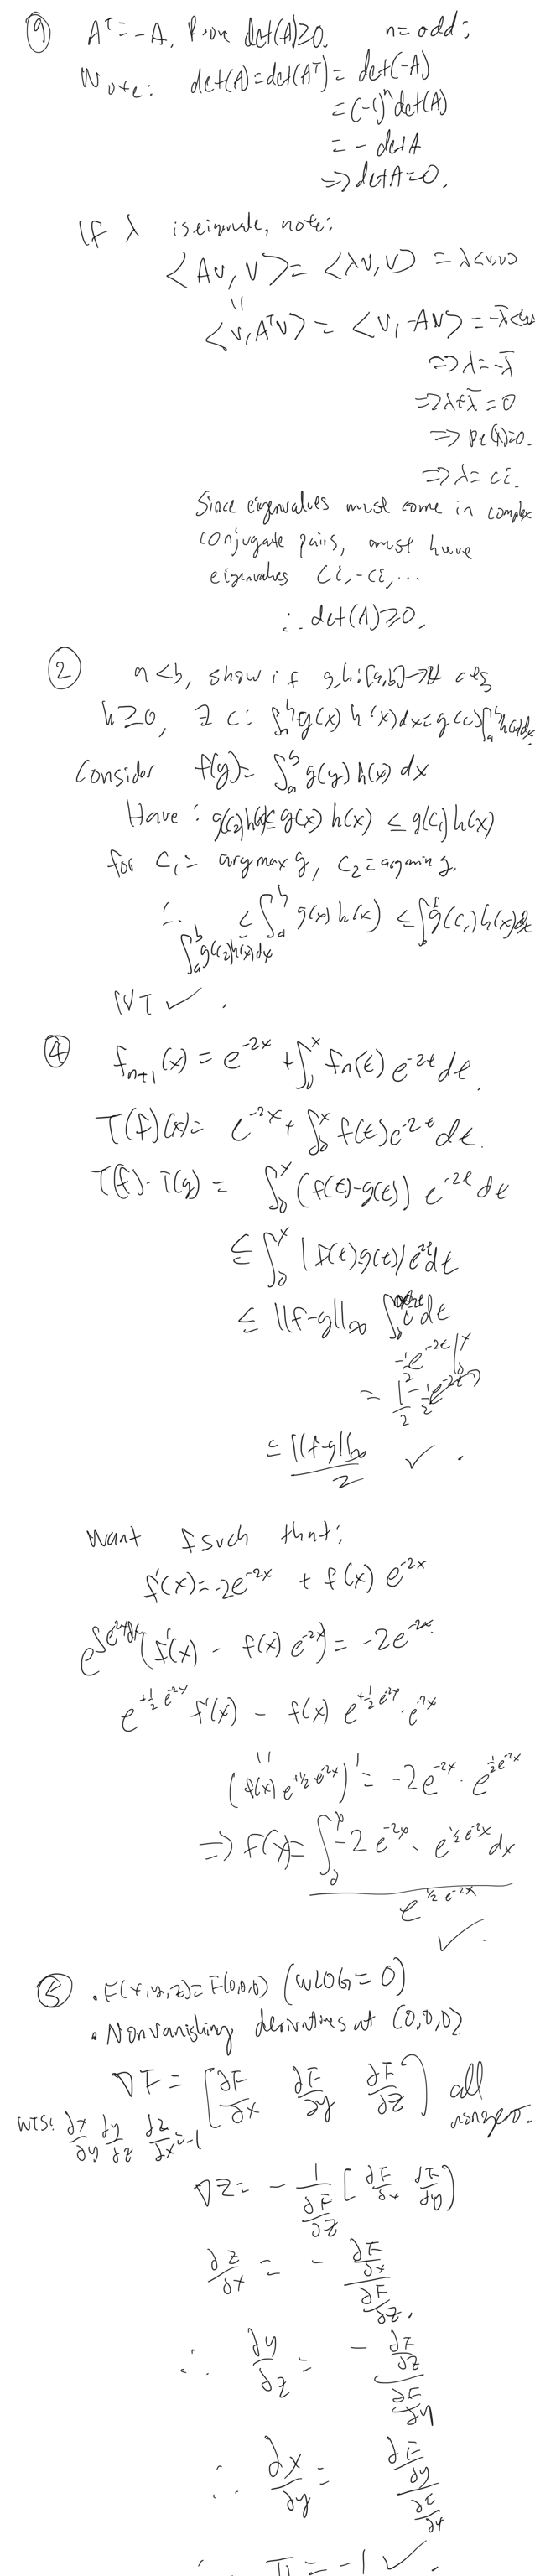 ⑨ Aᵀ = -A. Prove det(A)≥0. n=odd:
Note: det(A)=det(Aᵀ)= det(-A)
=(-1)ⁿdet(A)
= - det A
=> det A=0.
If λ is eigenvalue, note:
<Av, v> = <λv, v> = λ<v,v>
||
<v, Aᵀv> = <v, -Av> = -λ̄<v,v>
=> λ=-λ̄
=> λ+λ̄=0
=> Re(λ)=0.
=> λ= ci.
Since eigenvalues must come in complex
conjugate pairs, must have
eigenvalues ci, -ci, ...
∴ det(A)≥0.
② a<b, show if g,h: [a,b]→ℝ cts
h≥0, ∃ c: ∫ₐᵇ g(x) h(x) dx = g(c) ∫ₐᵇ h(x) dx.
Consider f(y)= ∫ₐᵇ g(y) h(x) dx
Have: g(c₂)h(x) ≤ g(x) h(x) ≤ g(c₁) h(x)
for c₁ = argmax g, c₂ = argmin g.
∴ ≤ ∫ₐᵇ g(x) h(x) ≤ ∫ g(c₁) h(x) dx
∫ₐᵇ g(c₂)h(x)dx
IVT ✓.
④ fₙ₊₁(x) = e⁻²ˣ + ∫₀ˣ fₙ(t) e⁻²ᵗ dt.
T(f)(x)= e⁻²ˣ + ∫₀ˣ f(t) e⁻²ᵗ dt.
T(f)-T(g) = ∫₀ˣ (f(t)-g(t)) e⁻²ᵗ dt
≤ ∫₀ˣ |f(t)g(t)| e⁻²ᵗ dt
≤ ||f-g||∞ ∫ e⁻²ᵗ dt
-½e⁻²ᵗ |₀ˣ
= ½ - ½e⁻²ᵗ
≤ ||f-g||∞ / 2 ✓.
Want f such that:
f'(x)=-2e⁻²ˣ + f(x) e⁻²ˣ
(f'(x) - f(x) e⁻²ˣ) = -2e⁻²ˣ
e^(+½ e⁻²ˣ) f'(x) - f(x) e^(+½ e⁻²ˣ) · e⁻²ˣ
||
(f(x) e^(+½ e⁻²ˣ))' = -2e⁻²ˣ · e^(½e⁻²ˣ)
=> f(x)= ∫₀ˣ -2 e⁻²ˣ · e^(½e⁻²ˣ) dx / e^(½ e⁻²ˣ)
✓.
⑤ • F(x,y,z)=F(0,0,0) (WLOG = 0)
• Nonvanishing derivatives at (0,0,0)
∇F = [∂F/∂x ∂F/∂y ∂F/∂z] all nonzero.
WTS: ∂x/∂y ∂y/∂z ∂z/∂x = -1
∇z = - 1/(∂F/∂z) [∂F/∂x ∂F/∂y]
∂z/∂x = - (∂F/∂x)/(∂F/∂z).
∴ ∂y/∂z = - (∂F/∂z)/(∂F/∂y)
∴ ∂x/∂y = (∂F/∂y)/(∂F/∂x)
∴ Π = -1 ✓.